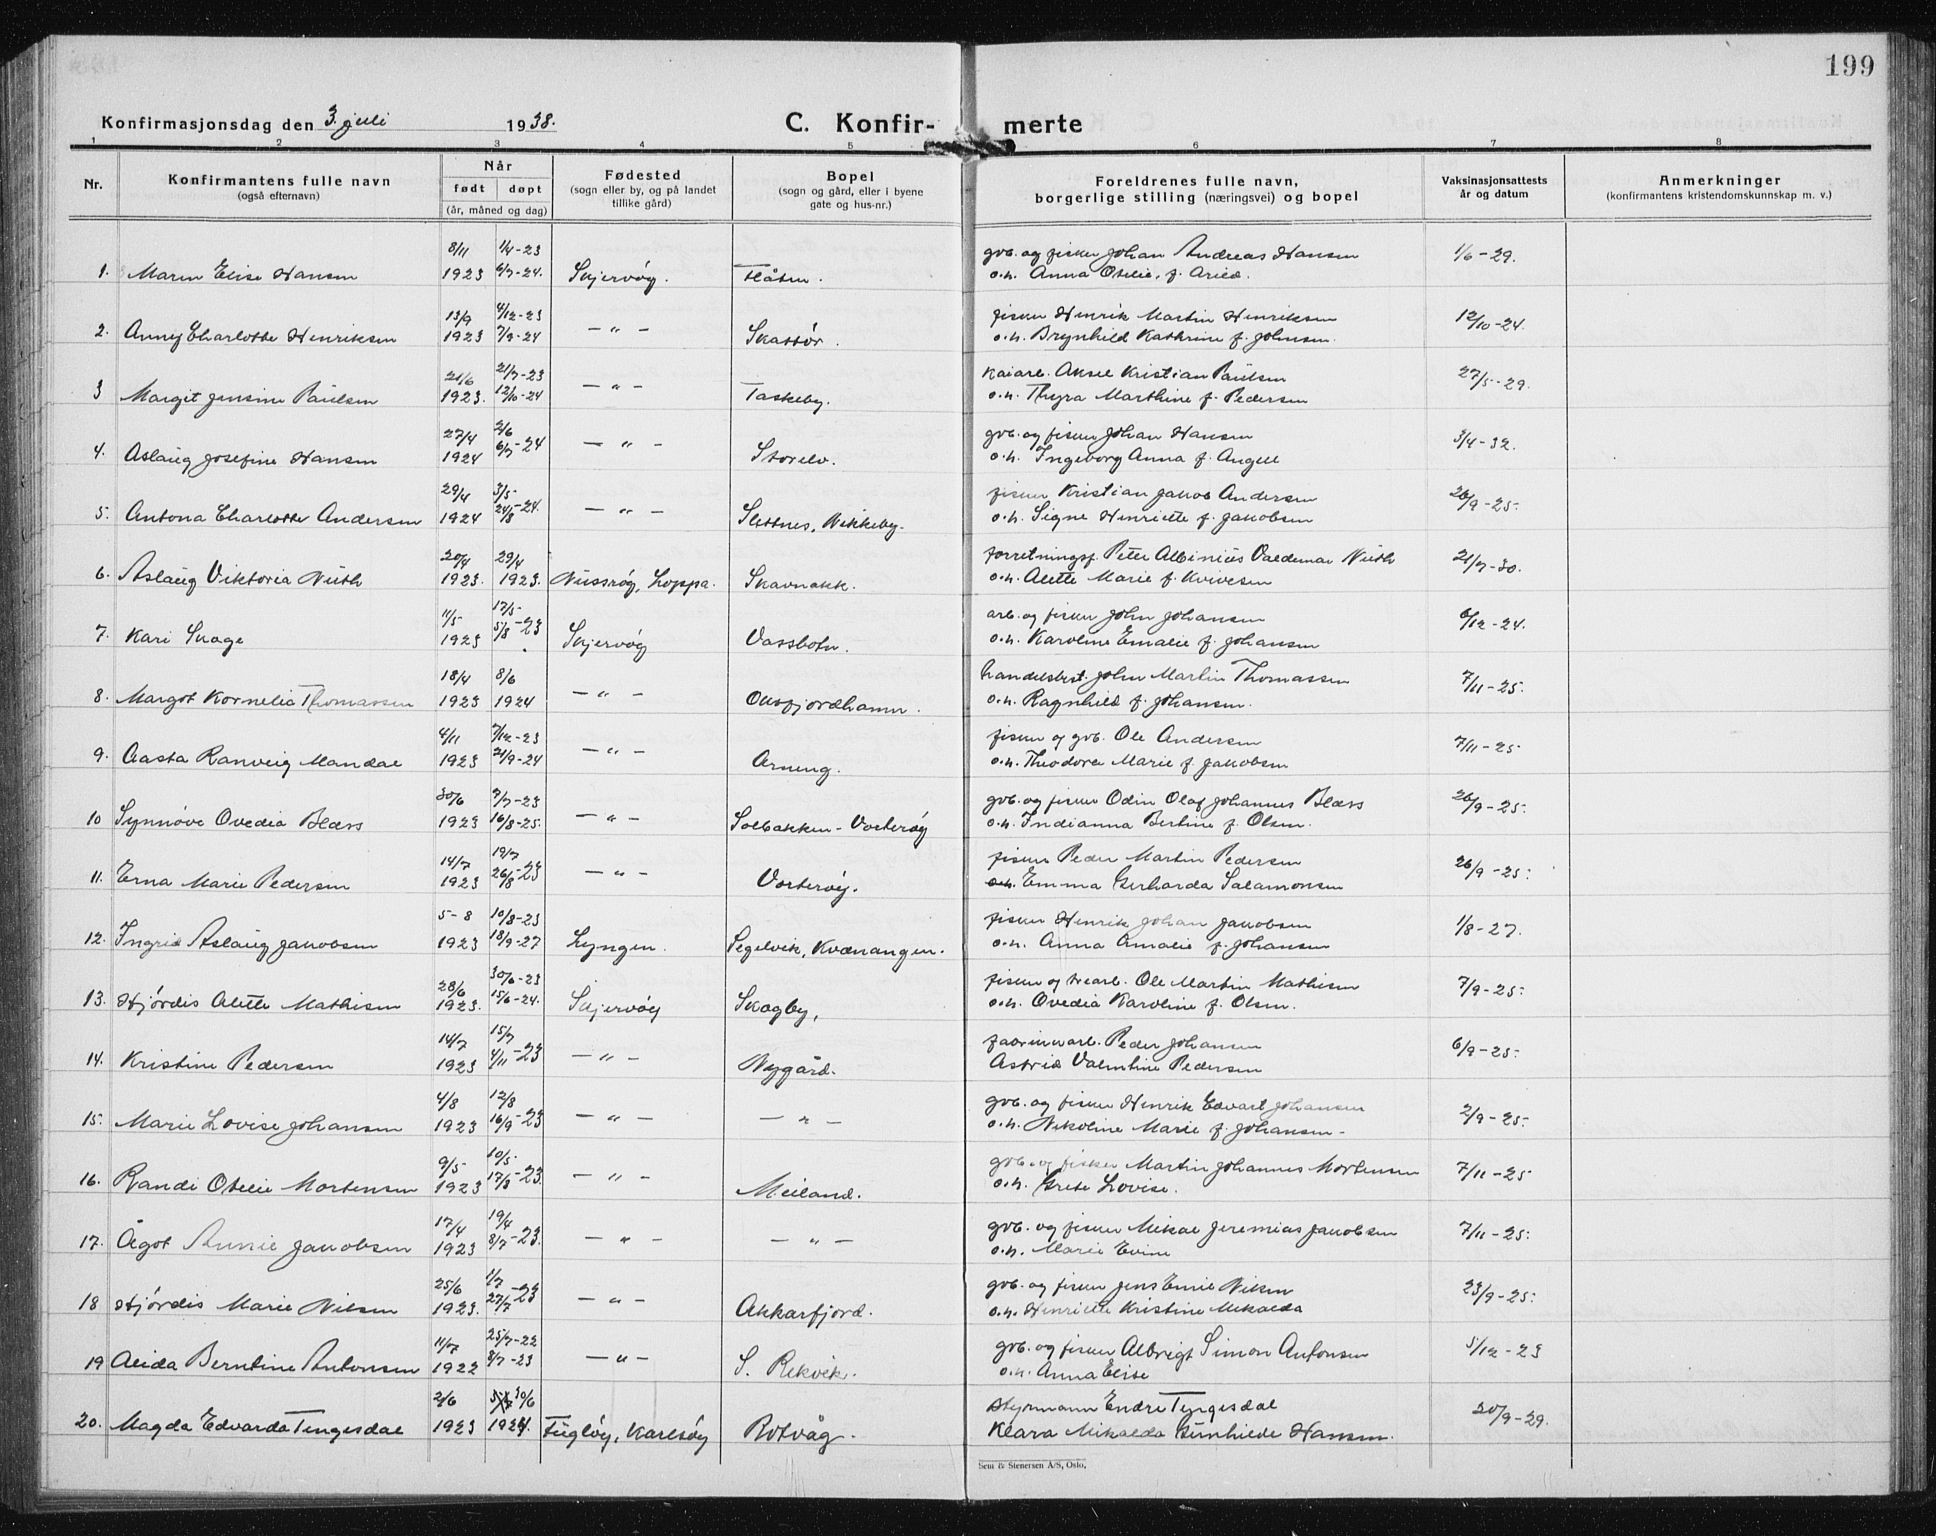 199
Konfirmasjonsdag den 3. juli 1938. C. Konfir- merte
1 2 3 4 5 6 7 8
Nr. Konfirmantens fulle navn (også efternavn) Når født døpt (år, måned og dag) Fødested (sogn eller by, og på landet tillike gård) Bopel (sogn og gård, eller i byene gate og hus-nr.) Foreldrenes fulle navn, borgerlige stilling (næringsvei) og bopel Vaksinasjonsattests år og datum Anmerkninger (konfirmantens kristendomskunnskap m. v.)
8/11 1/4-23 gvb. og fisker Johan Andreas Hansen 1/6-29.
1. Maren Elise Hansen 1923 6/7-24. Skjervøy. Flåten. o.h. Anna Otelie, f. Arild.
13/9 4/12-23 fisker Henrik Martin Henriksen 12/10-24.
2. Anny Charlotte Henriksen 1923 7/9-24 -"- Skattør. o.h. Brynhild Kathrine f. Johnsen.
21/6 21/7-23 kaiarb. Aksel Kristian Paulsen 27/5-29.
3 Margit Jensine Paulsen 1923. 12/10-24 -"- Taskeby. o.h. Thyra Marthine f. Pedersen
27/4 2/6 gvb. og fisker Johan Hansen 3/4-32.
4. Aslaug Josefine Hansen 1924 6/7-24 -"- Storelv. o.h. Ingeborg Anna f. Angell
29/4 3/5- fisker Kristian Jakob Andersen 26/9-25-
5. Antona Charlotte Andersen 1924 24/8-24. -"- Slettnes, Nikkeby. o.h. Signe Henriette f. Jakobsen
20/4 29/4 forretningsf. Peter Albinius Valdemar Nuth 21/7-30.
6. Aslaug Viktoria Nuth 1923. 1923. Nussvåg, Loppa. Skavnakk. o.h. Alette Marie f. Kvivesen
11/5 17/5- arb. og fisker John Johansen 6/12-24.
7. Kari Skage 1923 5/8-23 Skjervøy Vassbotn. o.h. Karoline Emalie f. Johansen
18/4 8/6 handelsbest. John Martin Thomassen 7/11-25.
8. Margot Kornelia Thomassen 1923 1924 -"- Oksfjordhamn. o.h. Ragnhild f. Johansen.
4/11 7/12-23 fisker og gvb. Ole Andersen 7/11-25-
9. Aasta Ranveig Mandal 1923 21/9-24 -"- Arneng. o.h. Theodora Marie f. Jakobsen
30/6 7/7-23 gvb. og fisker Odin Olaf Johannes Blæss 26/9-25.
10 Synnøve Ovedia Blæss 1923 16/8-25. -"- Solbakken-Vorterøy o.h. Indianna Bertine f. Olsen.
14/7 19/7 fisker Peder Martin Pedersen 26/9-25.
11. Erna Marie Pedersen 1923 26/8-23 -"- Vorterøy. o.h. Emma Gerharda Salamonsen
5-8 10/8-23 fisker Henrik Johan Jakobsen 1/8-27.
12. Ingrid Aslaug Jakobsen 1923 18/9-27 Lyngen. Segelvik, Kvænangen. o.h. Anna Amalie f. Johansen
28/6 30/6-23 fisker og Ole Martin Mathisen 7/9-25.
13. Hjørdis Alette Mathisen 1923. 15/6-24. Skjervøy Skogby, o.h. Ovedia Karoline f. Olsen.
14/7 15/7 fabrikkarb. Peder Johansen 6/9-25-
14. Kristine Pedersen 1923 4/11-23 -"- Nygård. Astrid Valentine Pedersen
4/8 12/8 gvb. og fisker Henrik Edvart Johansen 2/9-25-
15. Marie Lovise Johansen 1923 16/9-23 -"- -"- o.h. Nikoline Marie f. Johansen-
9/5- 10/5- gvb. og fisker Martin Johannes Mortensen 7/11-25
16. Randi Otelie Mortensen 1923 17/8-23. -"- Meiland. o.h. Grete Lovise.
17/4 19/4 gvb. og fisker Mikal Jeremias Jakobsen 7/11-25.
17. Ågot Annie Jakobsen 1923 8/7-23. -"- -"- o.h. Marie Evine
25/6 1/7 gvb. og fisker Jens Emil Nilsen 23/9-25.
18 Hjørdis Marie Nilsen 1923. 27/7-23 -"- Akkarfjord. o.h. Henriette Kristine Mikalda
11/7 25/7-22 gvb. og fisker Albrigt Simon Antonsen 5/12-23
19 Alida Berntine Antonsen 1922 8/7-23 -"- S. Rekvik. o.h. Anna Elise
2/6 10/6 styrmann Endre Tengesdal 20/9-29.
20. Magda Edvarda Tengesdal 1923 1924. Fugløy, Karlsøy Rotvåg. Klara Mikalda Gunhilde Hansen.
Sem & Stenersen A/S, Oslo.